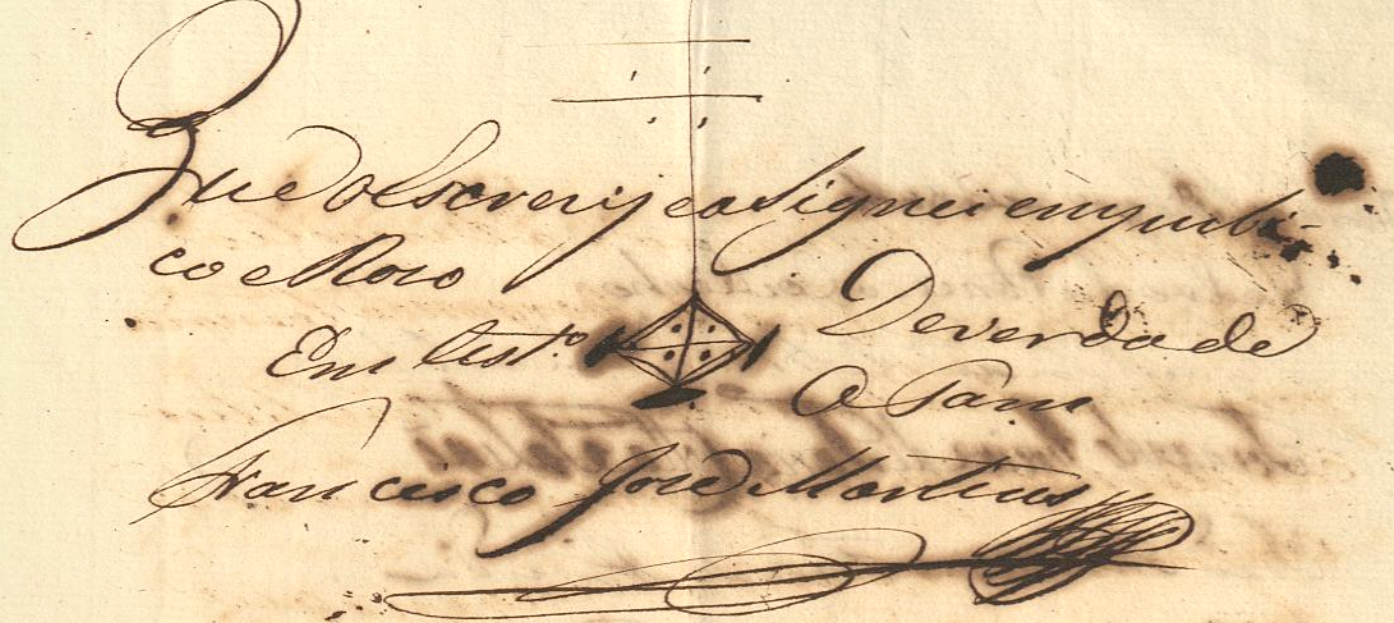 Que o Escrevy e asignei em publi-
co e Raso
Em test.º De verdade
O Tam
Francisco José Martins